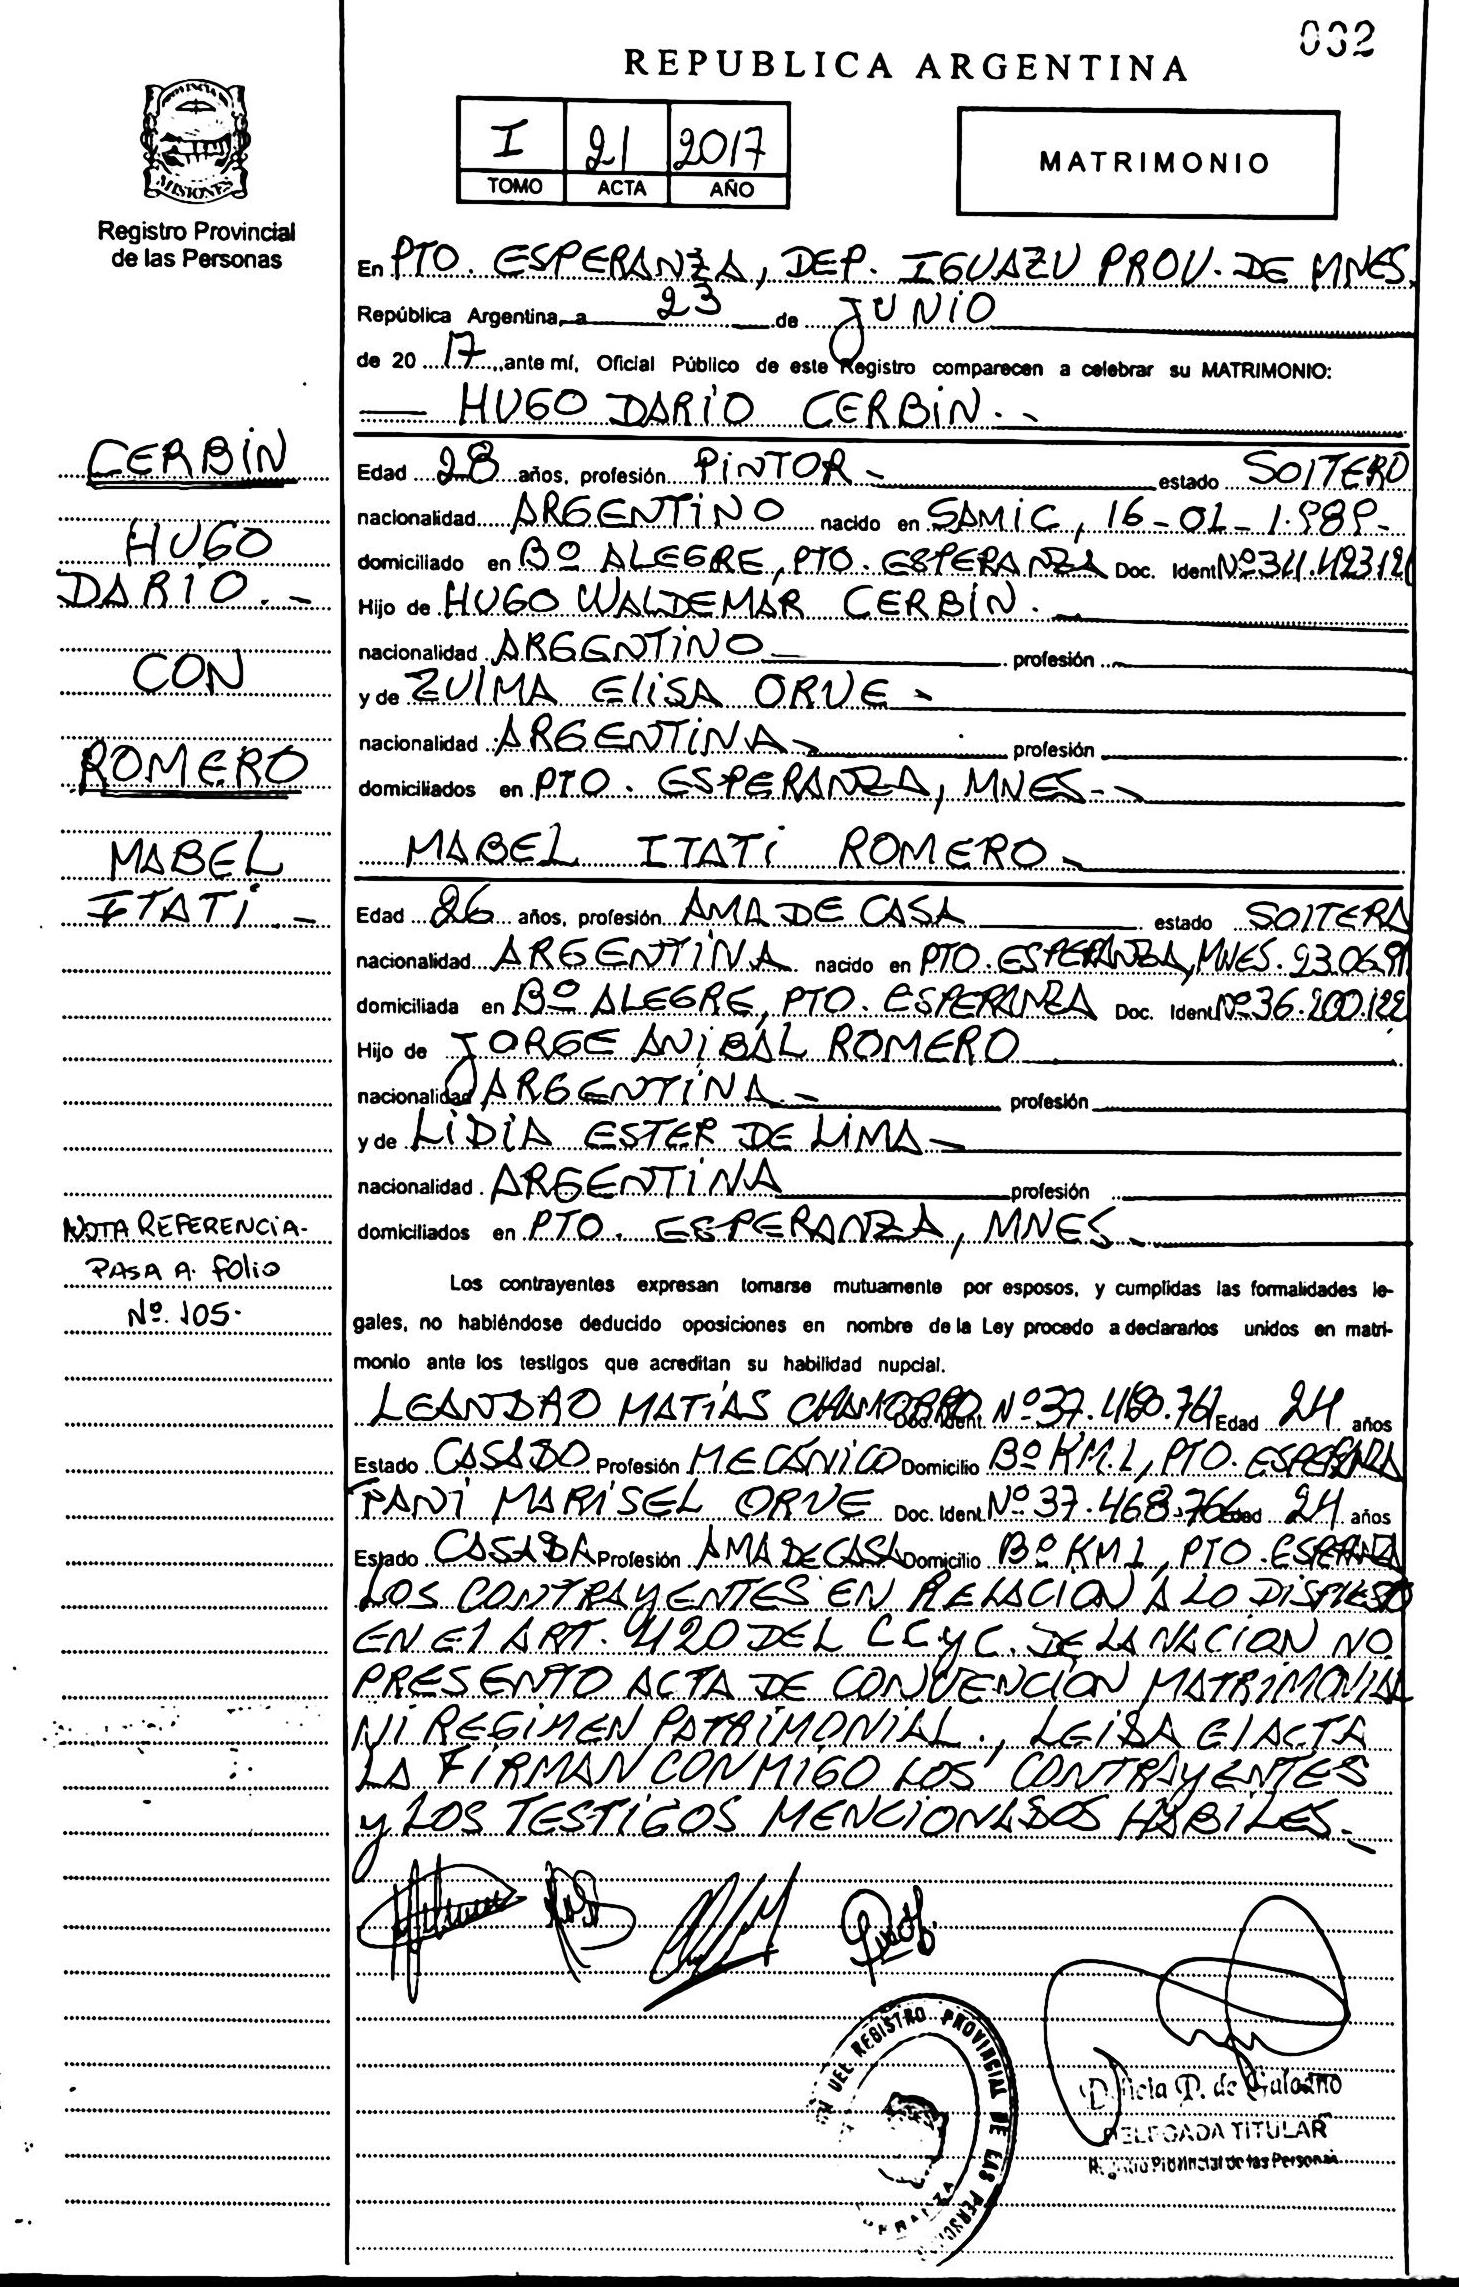 032
REPUBLICA ARGENTINA
PROVINCIA DE
MISIONES
Registro Provincial
de las Personas
I 21 2017
TOMO ACTA AÑO
MATRIMONIO
En PTO. ESPERANZA, DEP. IGUAZU PROV. DE MNES.
República Argentina, a 23 de JUNIO
de 20 17 ante mí, Oficial Público de este Registro comparecen a celebrar su MATRIMONIO:
HUGO DARIO CERBIN.-
CERBIN
HUGO
DARIO.-
CON
ROMERO
MABEL
ITATI.-
Edad 28 años, profesión PINTOR- estado SOLTERO
nacionalidad ARGENTINO nacido en SAMIC, 16-01-1.989-
domiciliado en Bº ALEGRE, PTO. ESPERANZA Doc. Ident Nº 34.423.121
Hijo de HUGO WALDEMAR CERBIN.-
nacionalidad ARGENTINO- profesión -
y de ZULMA ELISA ORUE-
nacionalidad ARGENTINA- profesión
domiciliados en PTO. ESPERANZA, MNES.-
MABEL ITATI ROMERO-
Edad 26 años, profesión AMA DE CASA estado SOLTERA
nacionalidad ARGENTINA nacido en PTO. ESPERANZA, MNES. 23.06.91
domiciliada en Bº ALEGRE, PTO. ESPERANZA Doc. Ident Nº 36.200.122
Hijo de JORGE ANIBAL ROMERO
nacionalidad ARGENTINA.- profesión
y de LIDIA ESTER DE LIMA-
nacionalidad ARGENTINA profesión
domiciliados en PTO. ESPERANZA, MNES-
NOTA REFERENCIA-
PASA A. FOLIO
Nº. 105.
Los contrayentes expresan tomarse mutuamente por esposos, y cumplidas las formalidades le-
gales, no habiéndose deducido oposiciones en nombre de la Ley procedo a declararlos unidos en matri-
monio ante los testigos que acreditan su habilidad nupcial.
LEANDRO MATIAS CHAMORRO Doc. Ident. Nº 37.460.761 Edad 24 años
Estado CASADO Profesión MECÁNICO Domicilio Bº KM.1, PTO. ESPERANZA
FANI MARISEL ORUE Doc. Ident. Nº 37.468.766 Edad 24 años
Estado CASADA Profesión AMA DE CASA Domicilio Bº KM1, PTO. ESPERANZA
LOS CONTRAYENTES EN RELACION A LO DISPUESTO
EN EL ART. 420 DEL C.C.yC. DE LA NACION NO
PRESENTO ACTA DE CONVENCION MATRIMONIAL
NI REGIMEN PATRIMONIAL., LEIDA EL ACTA
LA FIRMAN CONMIGO LOS CONTRAYENTES
y LOS TESTIGOS MENCIONADOS HABILES.-
DEL REGISTRO PROVINCIAL DE LAS
P. de Galeano
DELEGADA TITULAR
Registro Provincial de las Personas